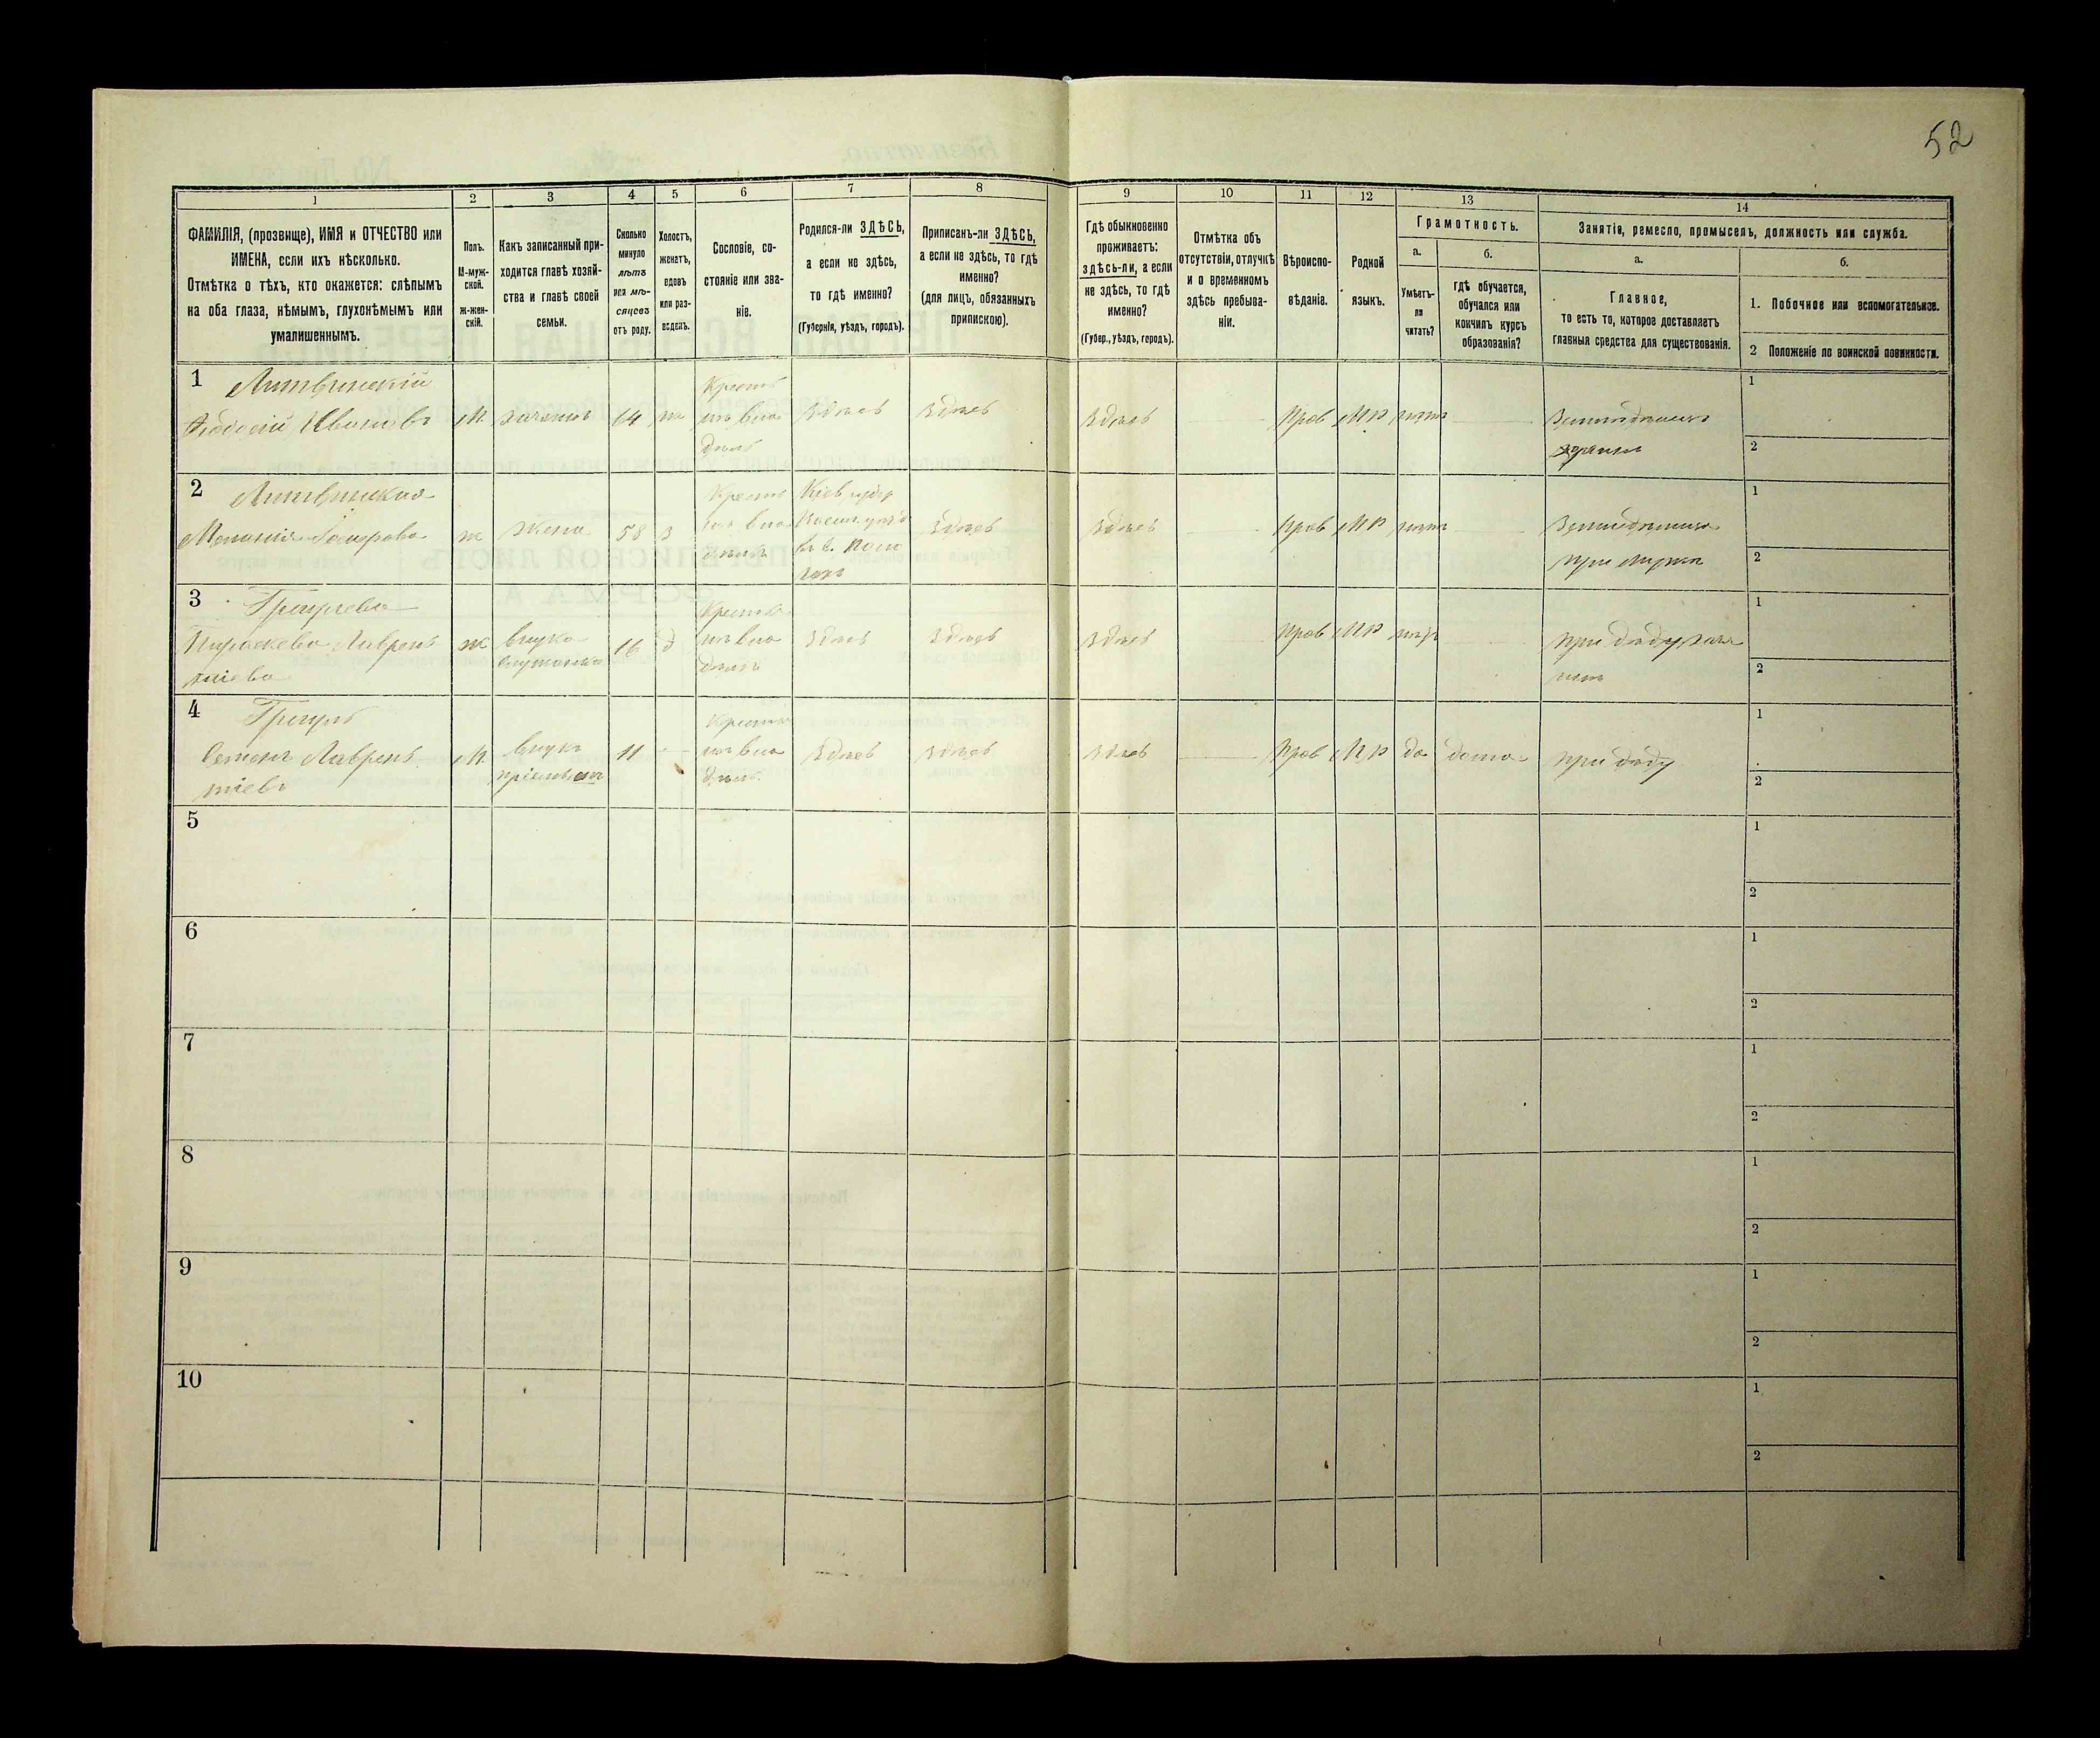 52
1
2
3
4
5
6
7
8
9
10
11
12
13
14
ФАМИЛІЯ, (прозвище), ИМЯ и ОТЧЕСТВО или
ИМЕНА, если ихъ нѣсколько.
Отмѣтка о тѣхъ, кто окажется: слѣпымъ
на оба глаза, нѣмымъ, глухонѣмымъ или
умалишеннымъ.
Полъ.
М-муж-
ской.
ж-жен-
скій.
Какъ записанный при-
ходится главѣ хозяй-
ства и главѣ своей
семьи.
Сколько
минуло
лѣтъ
или мѣ-
сяцевъ
отъ роду.
Холостъ,
женатъ,
вдовъ
или раз-
веденъ.
Сословіе, со-
стояніе или зва-
ніе.
Родился-ли ЗДѢСЬ,
а если не здѣсь,
то гдѣ именно?
(Губернія, уѣздъ, городъ).
Приписанъ-ли ЗДѢСЬ,
а если не здѣсь, то гдѣ
именно?
(для лицъ, обязанныхъ
припискою).
Гдѣ обыкновенно
проживаетъ:
здѣсь-ли, а если
не здѣсь, то гдѣ
именно?
(Губер., уѣздъ, городъ).
Отмѣтка объ
отсутствіи, отлучкѣ
и о временномъ
здѣсь пребыва-
ніи.
Вѣроиспо-
вѣданіе.
Родной
языкъ.
Грамотность.
а.
Умѣетъ-
ли
читать?
б.
гдѣ обучается,
обучался или
кончилъ курсъ
образованія?
Занятіе, ремесло, промыселъ, должность или служба.
а.
Главное,
то есть то, которое доставляетъ
главныя средства для существованія.
б.
1. Побочное или вспомогательное.
2 Положеніе по воинской повинности.
1 Литвинскій
Ѳеодосій Ивановъ
М.
хозяинъ
64
ж
Крест
изъ вла
дѣль
Здѣсь
Здѣсь
Здѣсь
Прав
МР
нѣтъ
1
2
2 Литвинская
ж
жена
58
з
Кіев губер
Здѣсь
Здѣсь
Прав
МР
нѣтъ
при мужѣ
1
2
3
Параскева Лаврен
тіева
ж
внука
16
д
Здѣсь
Здѣсь
Здѣсь
Прав
МР
нѣтъ
1
2
4
Семенъ Лаврен
тіевъ
М.
внукъ
11
Здѣсь
Здѣсь
Здѣсь
Прав
МР
да
дома
при дѣду
1
2
5
1
2
6
1
2
7
1
2
8
1
2
9
1
2
10
1
2